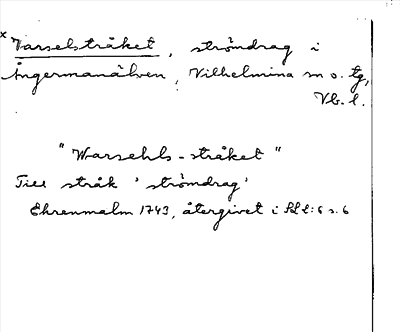 x Varselstråket, strömdrag i
Ångermanälven, Vilhelmina sn o. tg,
Vb. l.
"Warsehls-stråket"
Till stråk 'strömdrag'
Ehrenmalm 1743, återgivet i SLl:6 s. 6